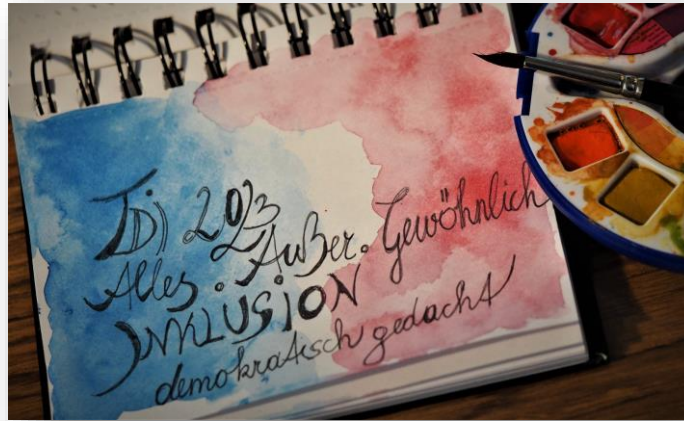 TDJ 2023
Alles. Außer. Gewöhnlich
INKLUSION
demokratisch gedacht